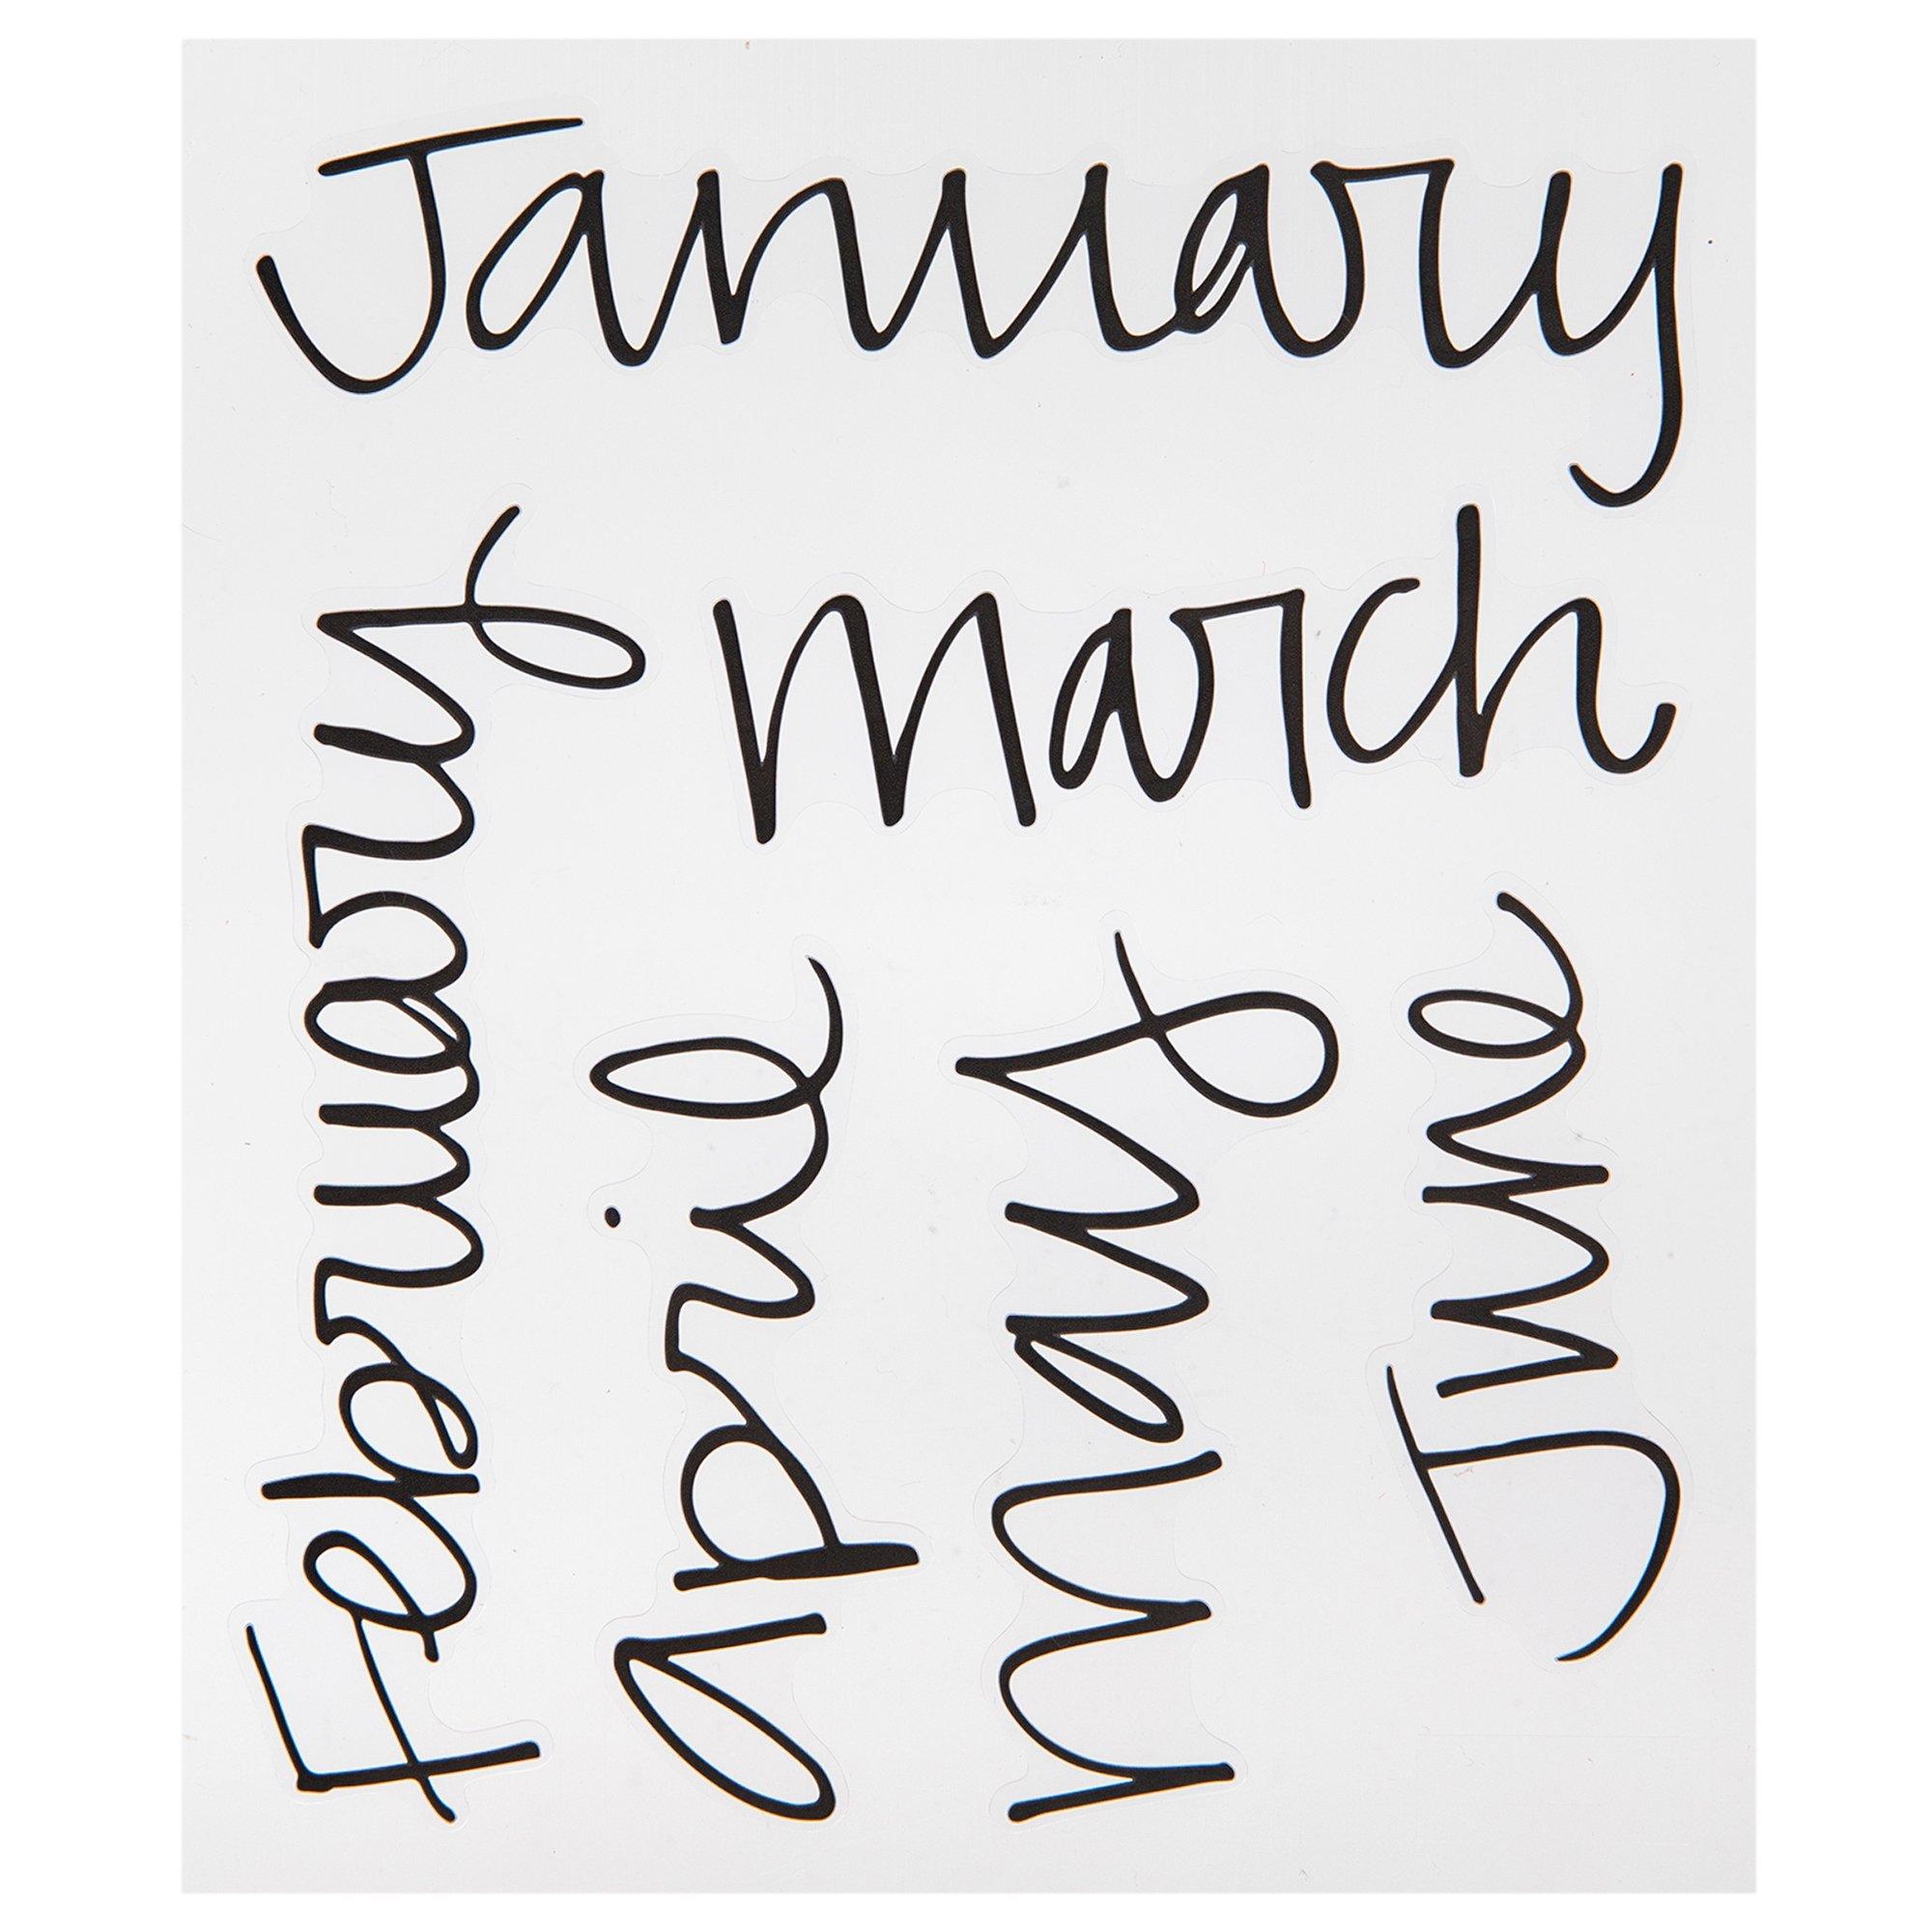 January
February
March
April
May
June